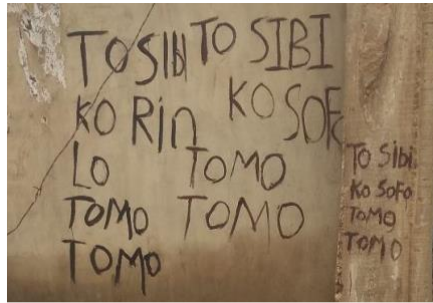 TO SIBI
KO RIn
LO
TOMO
TOMO
TO SIBI
KO SOFO
TOMO
TOMO
TO SiBi
KO SOFO
TOMO
TOMO